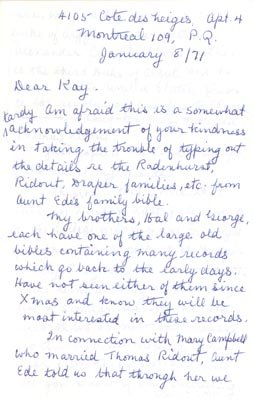 4105 Cote des neiges, Apt. 4
Montreal 109, P.Q.
January 8/71
Dear Kay.
Am afraid this is a somewhat
tardy acknowledgement of your kindness
in taking the trouble of typing out
the details re the Radenhurst,
Ridout, Draper families, etc. from
Aunt Ede's family bible.
My brothers, Hal and George,
each have one of the large old
bibles containing many records
which go back to the early days.
Have not seen either of them since
Xmas and know they will be
most interested in these records.
In connection with Mary Campbell
who married Thomas Ridout, Aunt
Ede told us that through her we